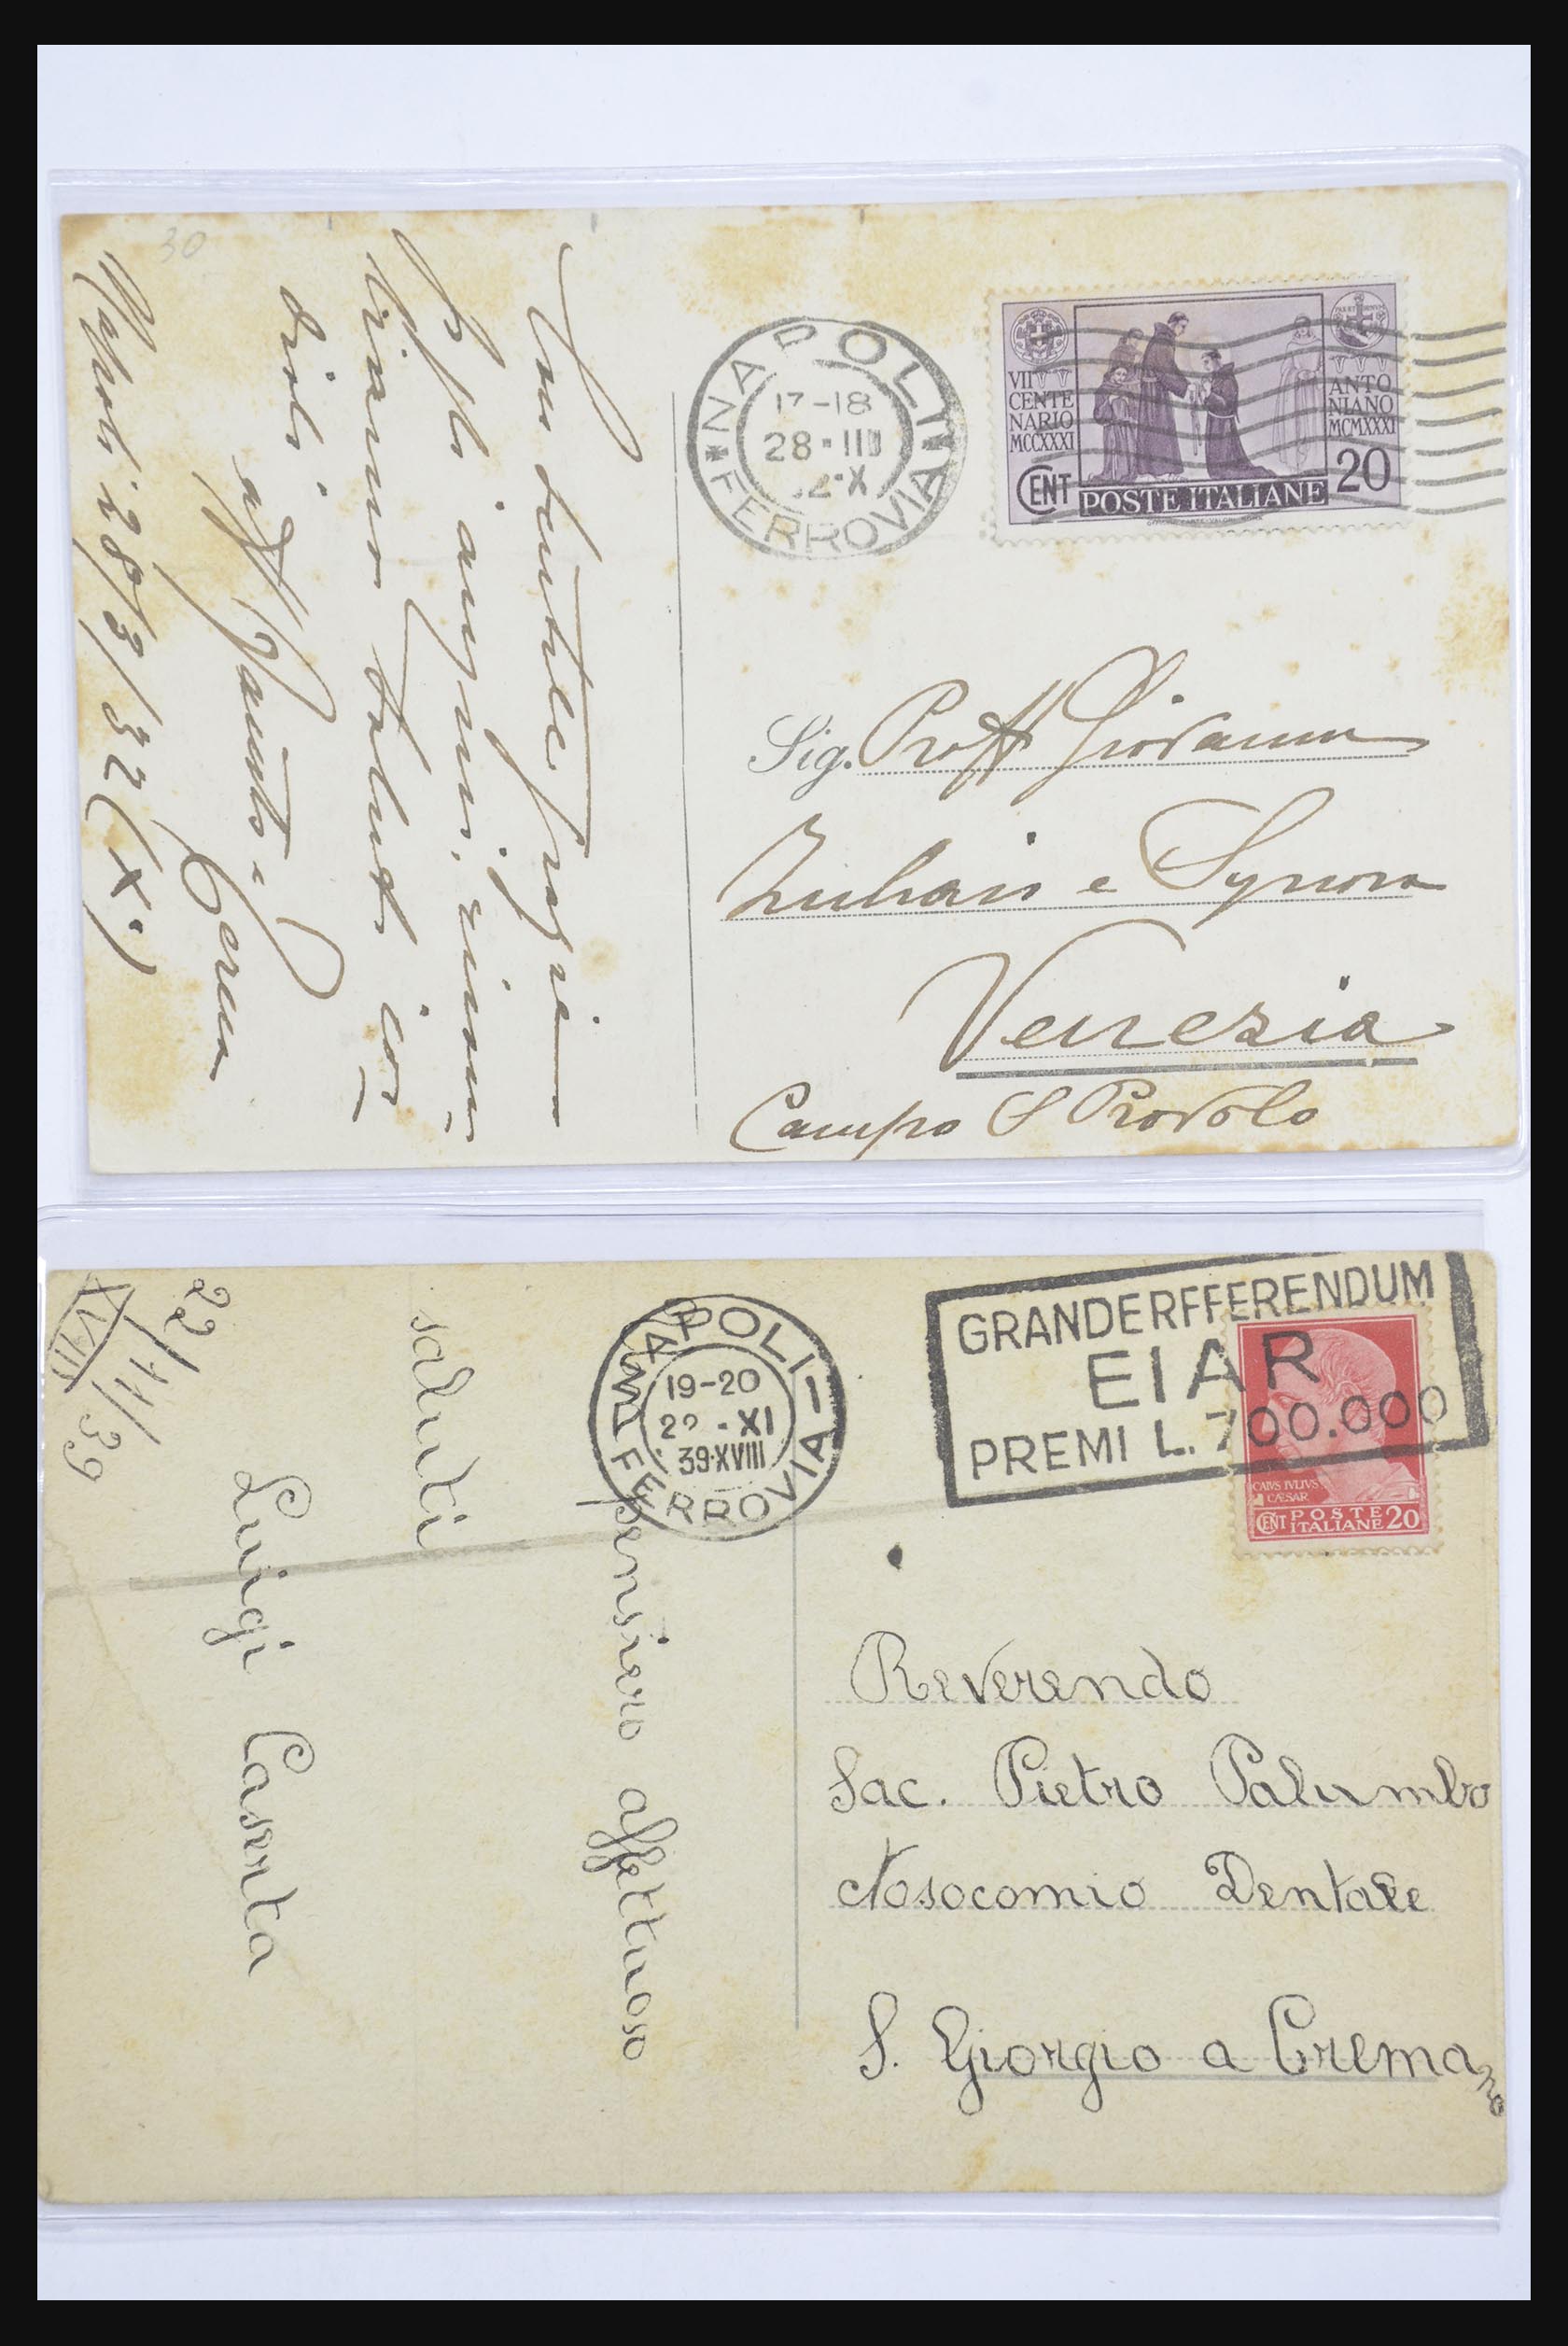 30
NAPOLI
17-18
28·III
32·X
FERROVIA
VII
CENTE
NARIO
MCCXXXI
ANTO
NIANO
MCMXXXI
CENT POSTE ITALIANE 20
saluti cor
diali.
aff
Napoli 28/3/32 (X.)
Sig. Proff Giovanni
e Signora
Venezia
Campo S Provolo
NAPOLI
19-20
22·XI
39·XVIII
FERROVIA
GRANDE RFFERENDUM
EIAR
PREMI L. 700.000
CAIVS IVLIVS
CÆSAR
CENT POSTE ITALIANE 20
pensiero affettuoso
saluti
Luigi Caserta
22/11/39
XVIII
Reverendo
Sac. Pietro Palumbo
Nosocomio Dentale
S. Giorgio a Cremano